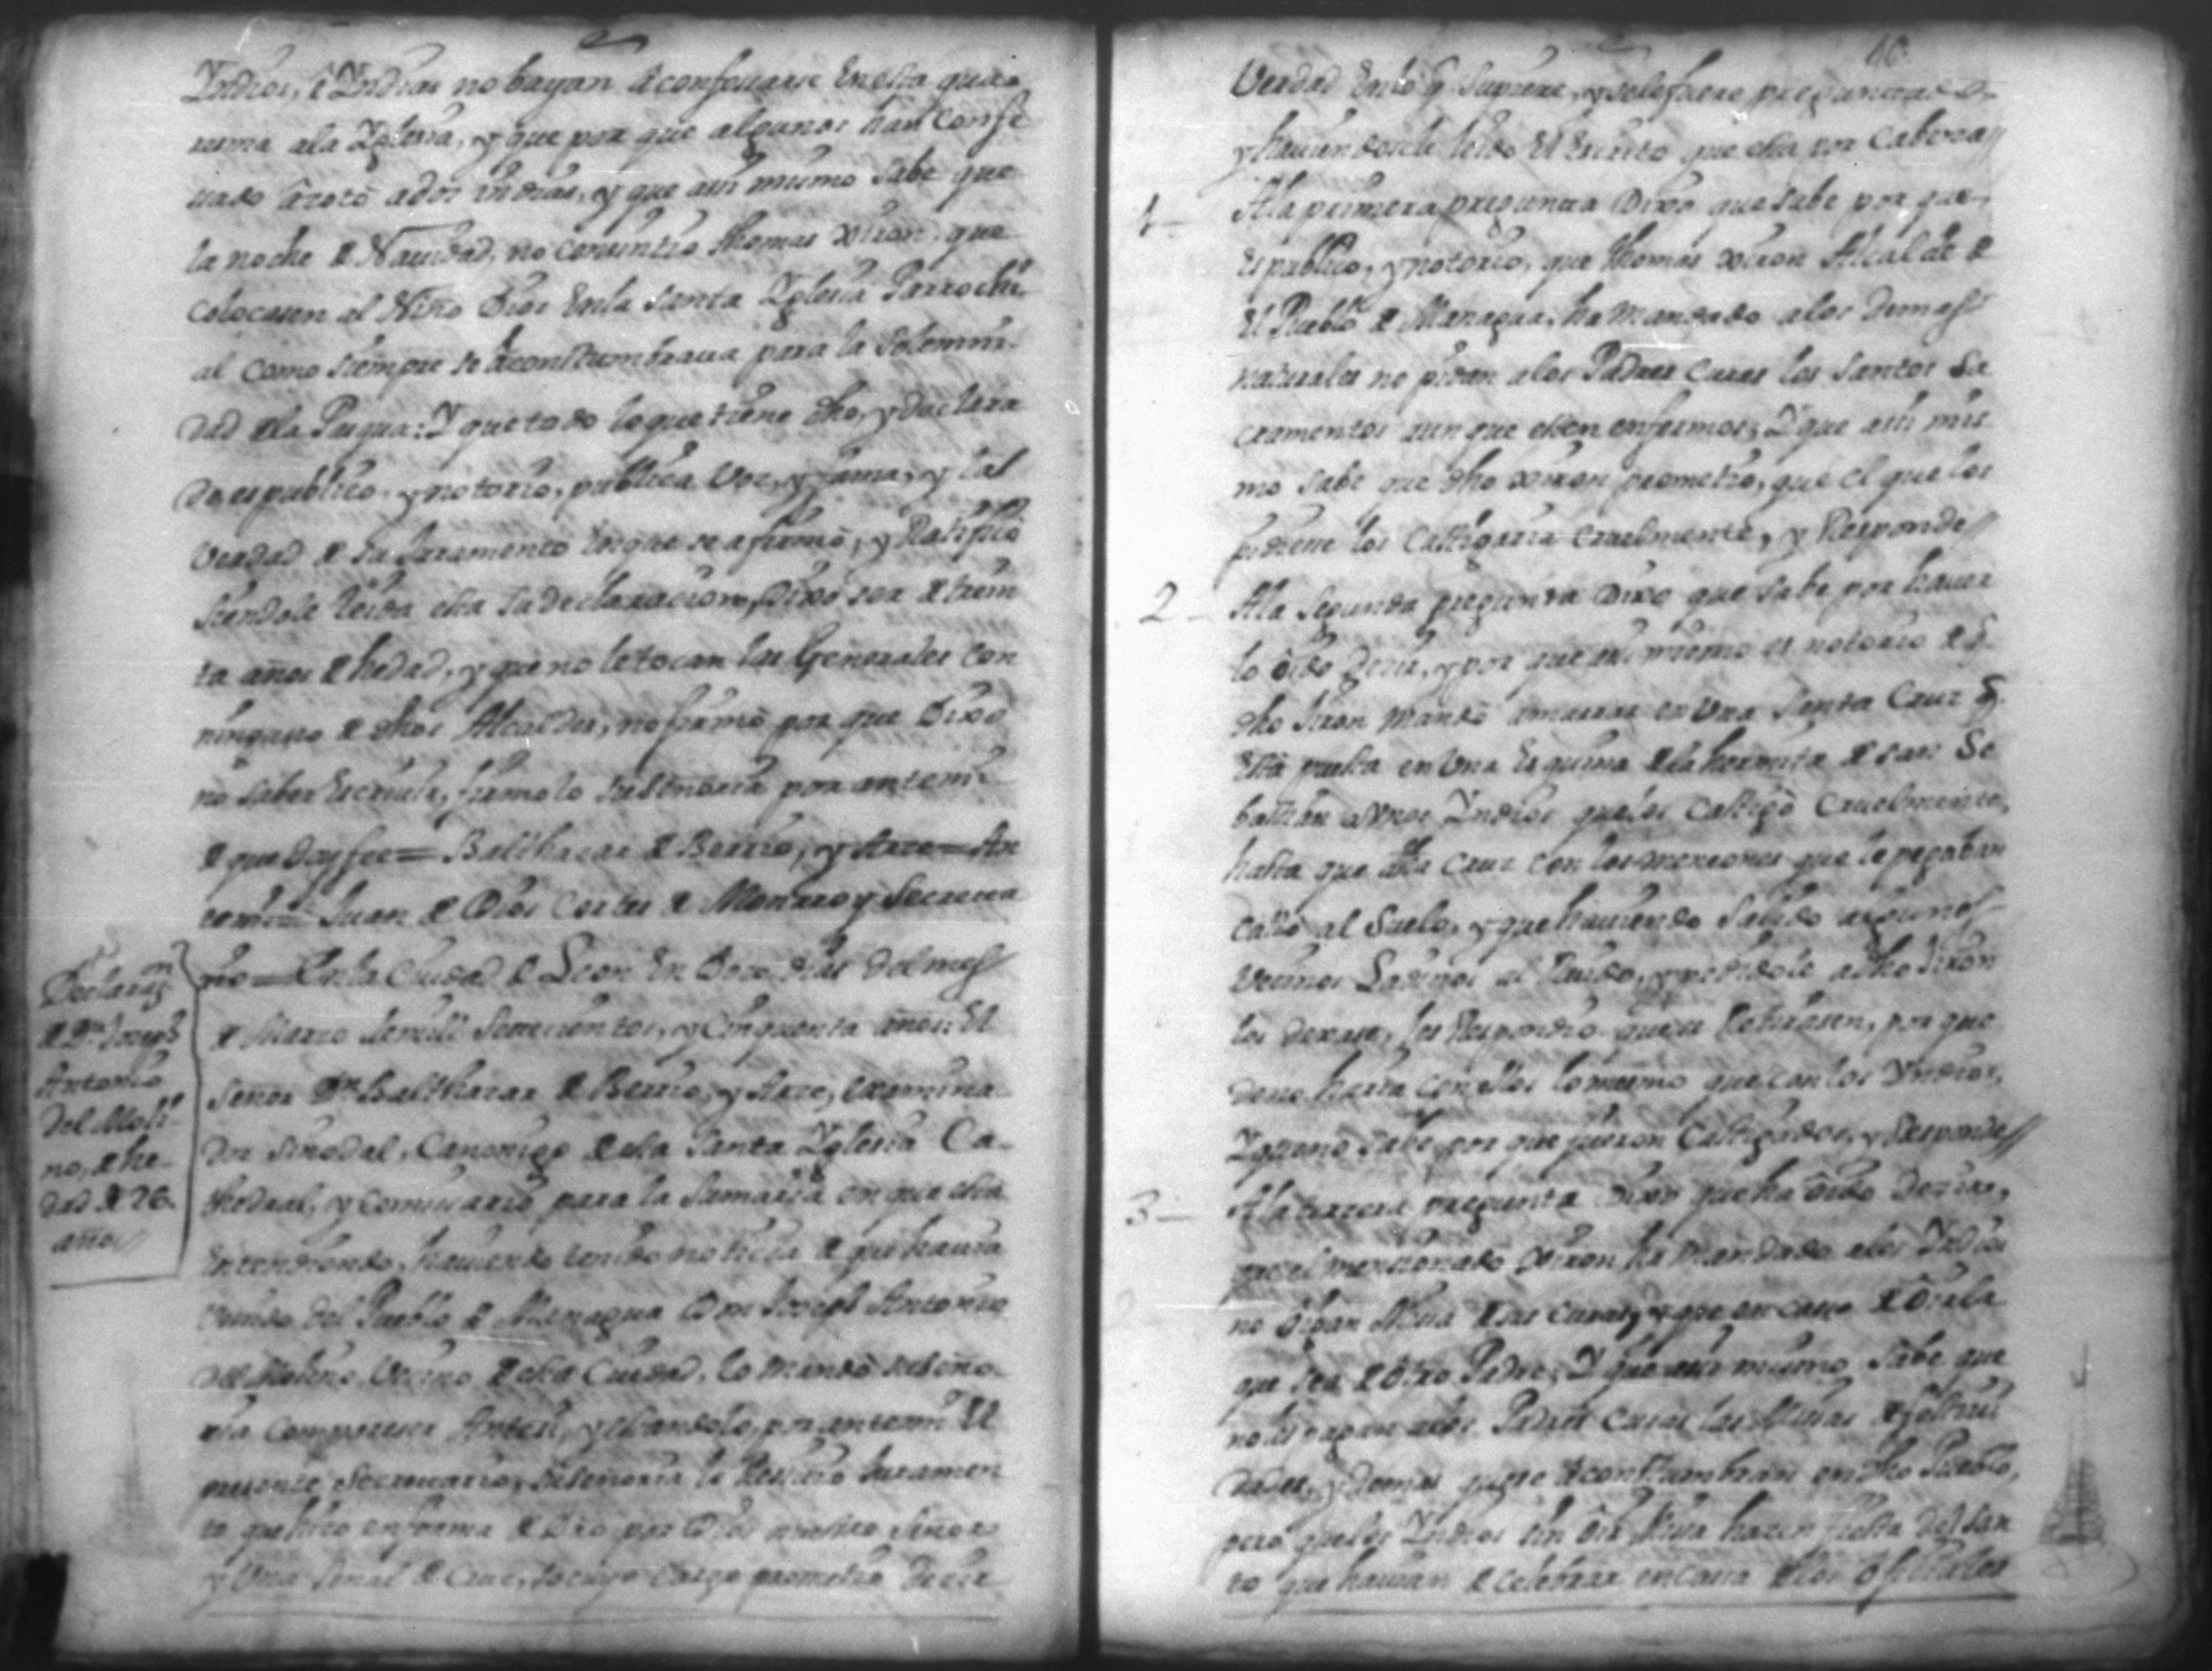 Yndios, è Yndias no bayan à confesarse en esta qua-
resma ala Yglesia, y que por que algunos han confe
sado asotò ados indias, y que asi mismo sabe que
la noche de Navidad, no consintio thomas xiron, que
colocasen al Niño Dios en la Santa Yglesia Parrochi-
al como siempre se acostumbraua para la Solemni-
dad de la Pasqua: Y que todo lo que tiene dho, y declara
do, es publico, y notorio, publica Voz, y fama, y la
Verdad de su Juramento en que se afirmò, y Ratificò
siendole leida esta su declaracion, Dixo ser de trein
ta años de hedad, y que no le tocan las Generales con
ninguno de dhos Alcaldes, no firmò por que Dixo
no saber escriuir, firmolo su Señoria por ante mi
de que doy fee = Balthazar de Berrio, y Arze = An
temi = Juan de Dios Cortes de Monrroy Secreta
rio = En la Ciudad de Leon en Doze dias del mes
de Marzo de mill Setecientos, y Cinquenta años: El
Señor Dn Balthazar de Berrio, y Arze, examina-
dor Sinodal, Canonigo de esta Santa Yglesia Ca-
thedral, y Comissario para la Sumaria en que esta
entendiendo, hauiendo tenido noticia de que hauia
venido del Pueblo de Managua Don Joseph Antonio
del Molino Vecino de esta Ciudad, lo mandò su Seño-
ria Comparecer Antesi, y estandolo, por antemi el
presente Secretario, su Señoria le Resiuio Juramen
to que hizo en forma de Dro por Dios nuestro Señor
y Una Señal de Cruz, so cuyo cargo prometio Decir
Declaraon
de Dn Joseph
Antonio
del Moli-
no, de he-
dad de 26
años
46
Verdad en lo q Supiere, y se le fuere preguntado
y hauiendosele leido el escrito que esta por Cabeza
1 — Ala primera pregunta Dixo que sabe por que
es publico, y notorio, que thomas xiron Alcalde de
el Pueblo de Managua, ha mandado alos demas
naturales no pidan alos Padres Curas los Santos Sa
cramentos aun que esten enfermos, Y que asi mis
mo sabe que dho xiron prometio, que el que los
pidiese los castigaria cruelmente, y Responde
2 — Ala Segunda pregunta Dixo que sabe por hauer
lo òido dezir, y por que asi mismo es notorio de q.
dho Jiron mandò amarrar en Una Santa Cruz q.
està puesta en Una esquina de la hermita de San Se
bastian a Unos Yndios que los castigò cruelmente,
hasta que dha Cruz con los que le pegaban
caiò al Suelo, y que hauiendo Salido algunos
Vecinos Ladinos al Ruido, y pedidole adho Jiron
los dexase, les Respondio que se Retirasen, por que
de no haria con ellos lo mismo que con los Yndios,
Y que no sabe por que fueron Castigados, y Responde
3 — Ala tercera pregunta Dixo que ha oìdo Dezir,
que el mencionado Xiron ha mandado alos Yndios
no òigan Missa de sus Curas, y que en caso de òirla
que sea de òtro Padre, Y que asi mismo sabe que
no les pagan alos Padres Curas las Missas de festiui
dades, y demas que se acostumbran en dho Pueblo,
pero que los Yndios sin òir Missa hazen fiesta del San
to que hauian de celebrar en casa de los Oficiales